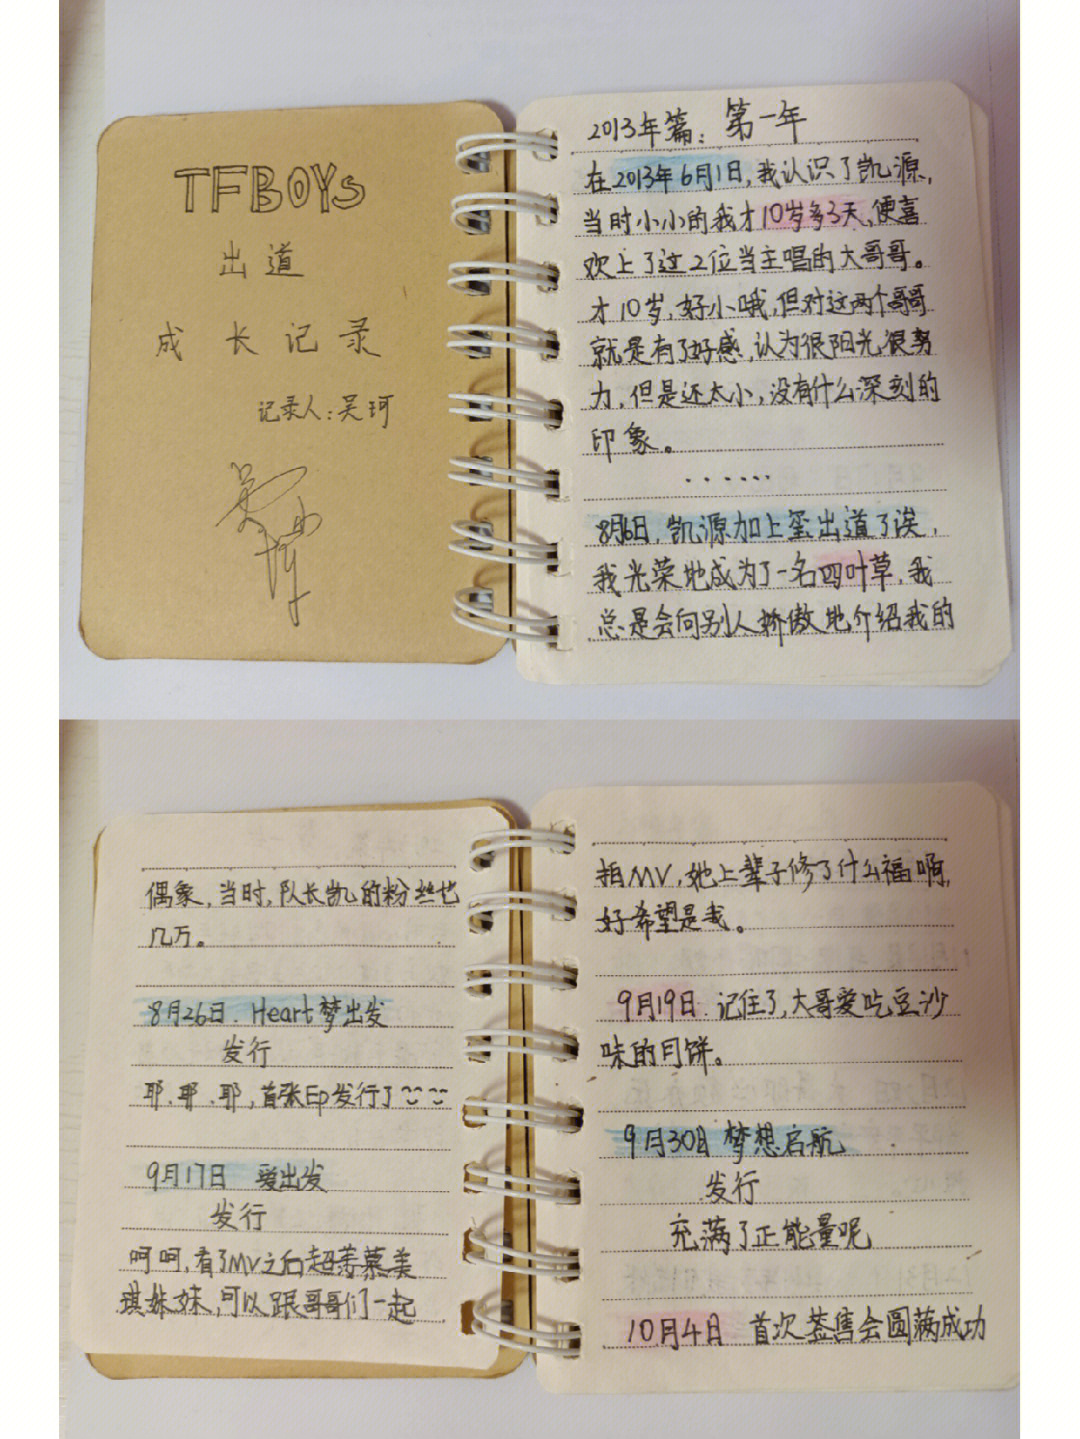 TFBOYs
出道
成长记录
记录人：吴珂
2013年篇：第一年
在2013年6月1日，我认识了凯源，
当时小小的我才10岁多3天，便喜
欢上了这2位当主唱的大哥哥。
才10岁，好小哦，但对这两个哥哥
就是有了好感，认为很阳光很努
力，但是还太小，没有什么深刻的
印象。
......
8月6日，凯源加上玺出道了诶，
我光荣地成为了一名四叶草，我
总是会向别人骄傲地介绍我的
偶象，当时，队长凯的粉丝也
几万。
8月26日．Heart梦出发
发行
耶．耶．耶，首张EP发行了
9月17日 爱出发
发行
呵呵，看了MV之后超羡慕美
琪妹妹，可以跟哥哥们一起
拍MV，她上辈子修了什么福啊，
好希望是我。
9月19日．记住了，大哥爱吃豆沙
味的月饼。
9月30日 梦想启航
发行
充满了正能量呢
10月4日 首次签售会圆满成功